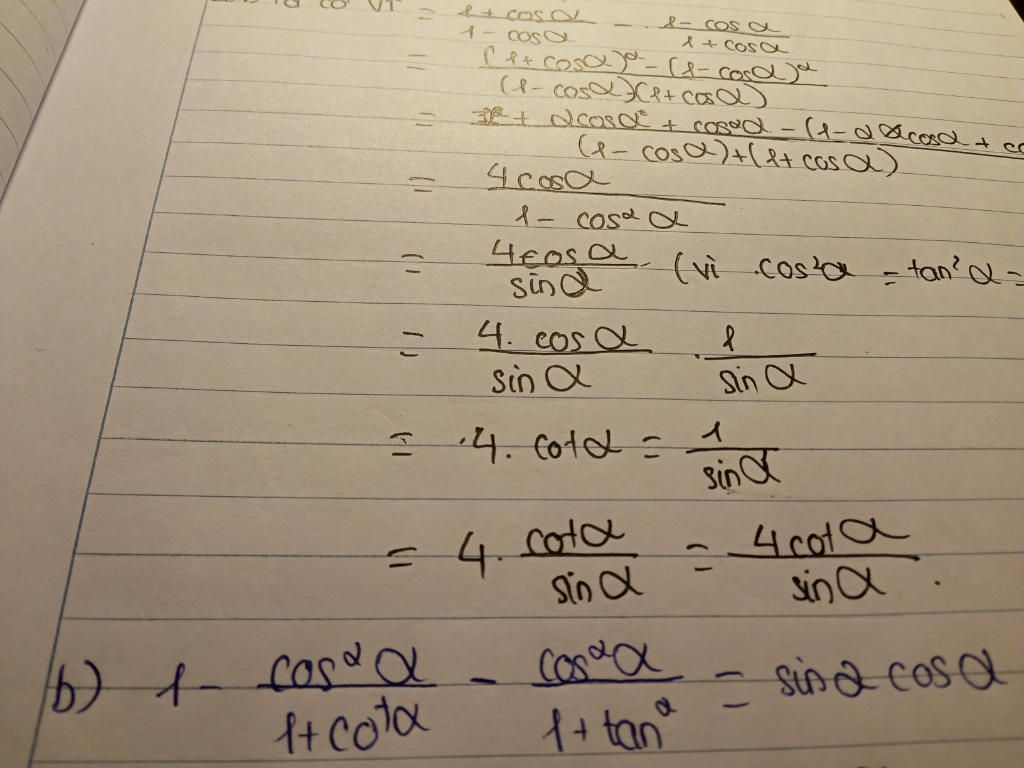 ta có VT = 1 + cosα / 1 - cosα - 1 - cosα / 1 + cosα
= (1 + cosα)² - (1 - cosα)² / (1 - cosα)(1 + cosα)
= + 2cosα + cos²α - (1 - 2cosα + / (1 - cosα)+(1 + cosα)
= 4cosα / 1 - cos²α
= 4cosα / sinα (vì cos²α = tan²α =
= 4. cosα / sinα . 1 / sinα
= .4. cotα = 1 / sinα
= 4. cotα / sinα = 4cotα / sinα .
b) 1 - cos²α / 1 + cotα - cos²α / 1 + tanα = sinα cosα